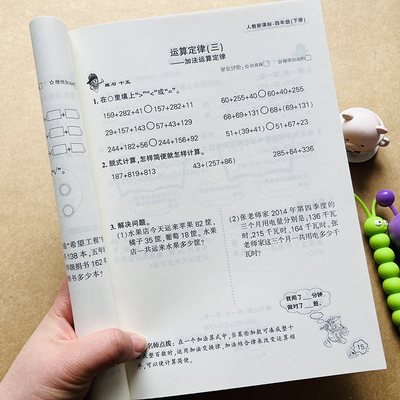 人教新课标·四年级(下册)
运算定律(三)
——加法运算定律
1. 在○里填上“>”“<”或“=”。
159+282+41○157+282+11 60+255+40○60+40+255
29+157+143○57+43+129 68+69+131○68+(69+131)
244+182+56○244+156+92 51+(39+41)○51+67+23
2. 脱式计算,怎样简便就怎样计算。
187+819+813 43+(257+86) 285+64+336
3. 解决问题。
(1)水果店今天运来苹果 82 筐,
橘子 35 筐,葡萄 18 筐。水果
店一共运来水果多少筐?
(2)张老师家 2014 年第四季度的
三个月用电量分别是:136 千瓦
时,215 千瓦时,164 千瓦时。张
老师家这三个月一共用电多少千
瓦时?
我用了___分钟
做对了___题。
名师点拨:在一个加法算式中,当某些加数可凑成整十
或整百数时,运用加法交换律、加法结合律来改变运算顺
序,可以使计算简便。
15